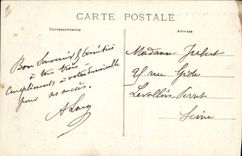 CARTE POSTALE
Correspondance
Adresse
Bon Souvenir & Amitiés
à tous trois
Compliments à votre famille
Madame Jubert
25 rue Gide
Levallois Perret
Seine